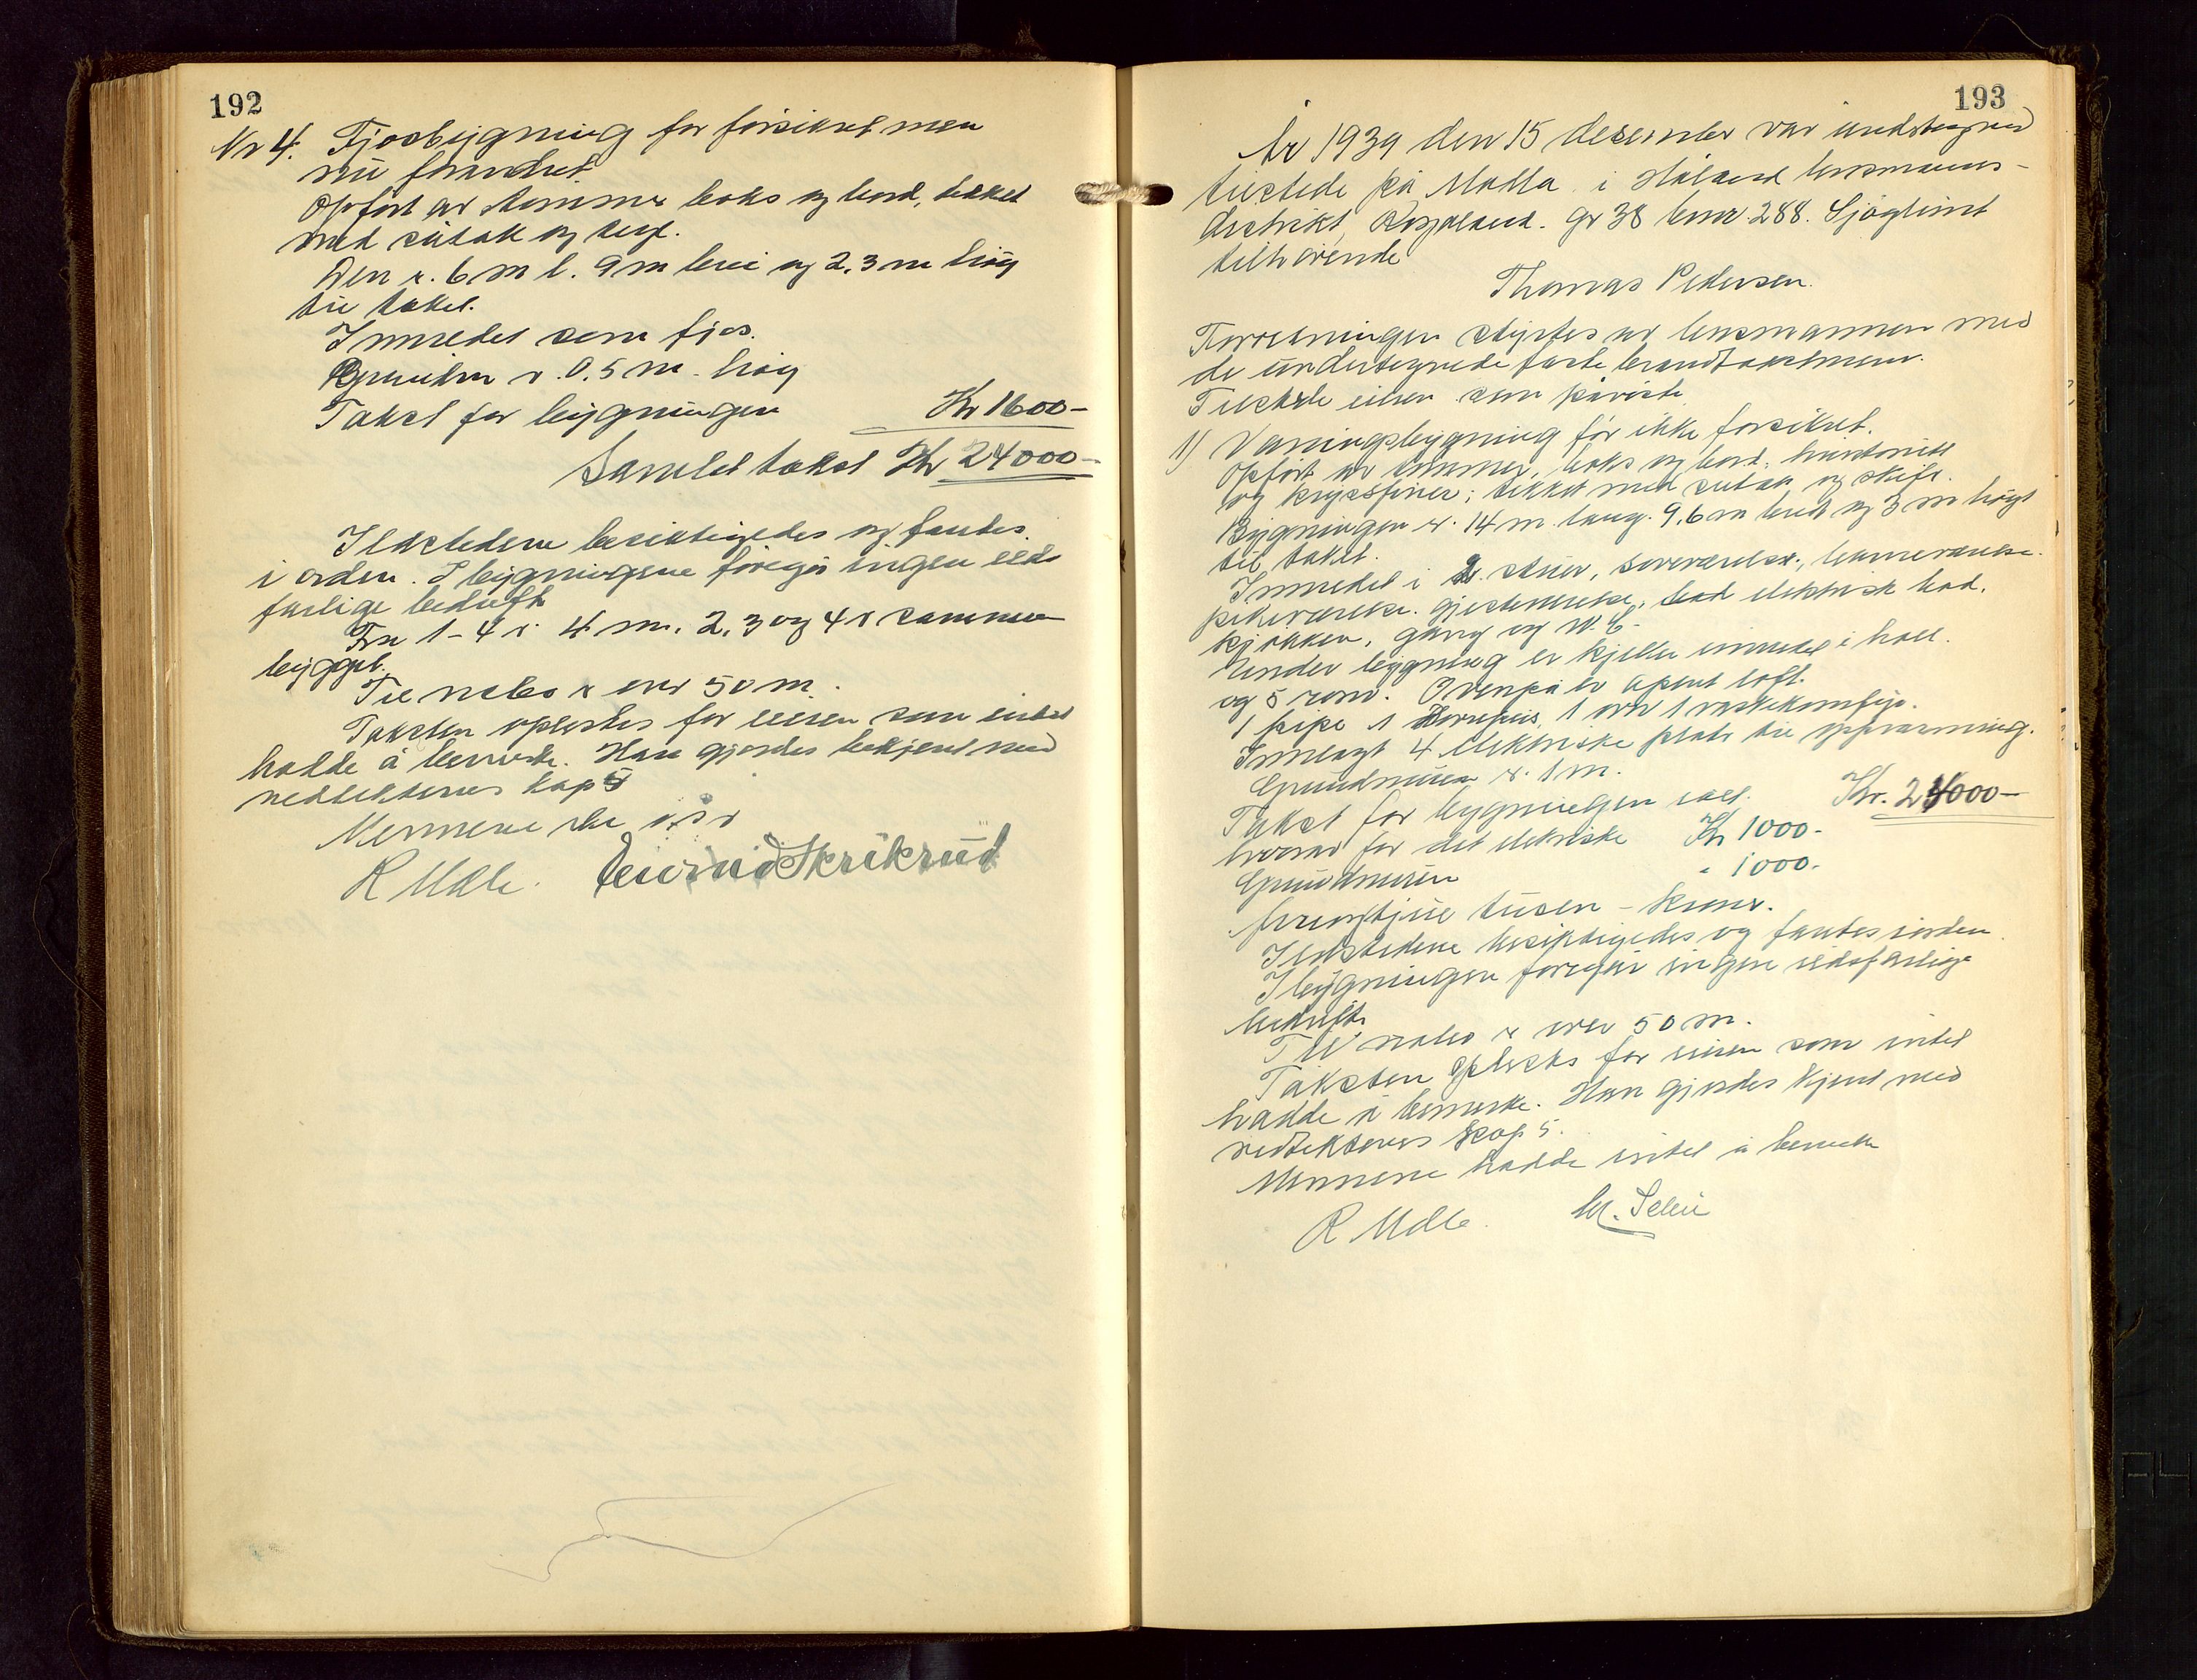 192
Nr 4. Fjosbygning før forsikret men
nu forandret
Opført av tømmer boks og bord, tekket
med sutak og tegl.
Den er 6 m l. 9 m brei og 2,3 m høg
til taket.
Innredet som fjos.
Grunnen er 0,5 m høg
Takst for bygningen Kr 1600-
Samlet takst Kr 24000-
Ildstedene besiktigedes og fantes
i orden. I bygningene foregår ingen ilds
farlige bedrift
Fra 1-4 er 4 m. 2, 3 og 4 er sammen
bygget.
Til nabo er over 50 m.
Taksten oplestes for eieren som intet
hadde å bemerke. Han gjordes bekjent med
vedtektenes kap 5
Mennene
R Udle. Skrikrud
193
År 1939 den 15 desember var undertegnede
tilstede på Madla i Håland lensmanns-
distrikt, Rogaland. gr 38 bnr. 288. Sjøglimt
tilhørende
Thomas Pedersen.
Forretningen styrtes av lensmannen med
de undertegnede faste branntakstmenn.
Tilstede eieren som påviste
1) Vaningsbygning før ikke forsikret.
Opført av tømmer, boks og bord, huntonitt
og kryssfiner; tekket med sutak og skifer.
Bygningen er 14 m lang. 9,6 m bred og 3 m høgt
til taket.
Innredet i 2 stuer, soveværelse, barneværelse
pikeværelse. gjesteværelse, bad elektrisk bad.
kjøkken, gang og W.C.
Under bygning er kjeller innredet i hall.
og 5 rom. Ovenpå er åpent loft.
1 pipe 1 1 ovn 1 vaskekomfyr.
Innlagt 4 elektriske plater til oppvarming.
Grundmuren er 1 m.
Takst for bygningen ialt. Kr. 24000-
hvorav for det elektriske Kr 1000-
Grundmuren " 1000-
tusen - Kroner.
Ildstedene besiktigedes og fantes iorden
I bygningen foregår ingen ildsfarlige
bedrift.
Til nabo er over 50 m.
Taksten oplestes for eieren som intet
hadde å bemerke. Han gjordes kjent med
vedtektenes kap 5.
Mennene hadde intet å bemerke
R Udle.